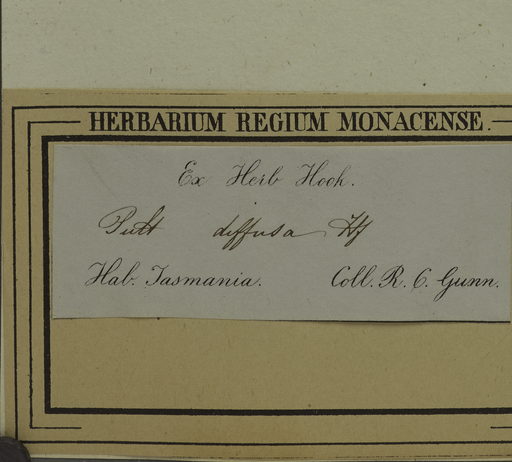 HERBARIUM REGIUM MONACENSE.
Ex Herb Hook.
Pult diffusa Hf
Hab. Tasmania. Coll. R. C. Gunn.